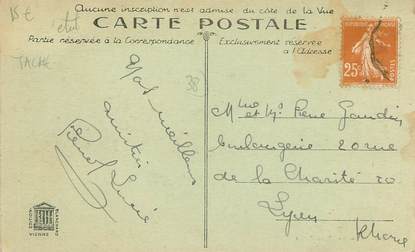 15 €
état
TACHE
Aucune inscription n'est admise du côté de la Vue
CARTE POSTALE
Partie réservée à la Correspondance
Exclusivement réservée
à l'Adresse
25c
38
Nos meilleures
amitiés
Pierre Lucie
Mme et Mr Pierre Gaudin
Boulangerie 20 rue
de la Charité 20
Lyon
Rhône
BLANCHARD
VIENNE